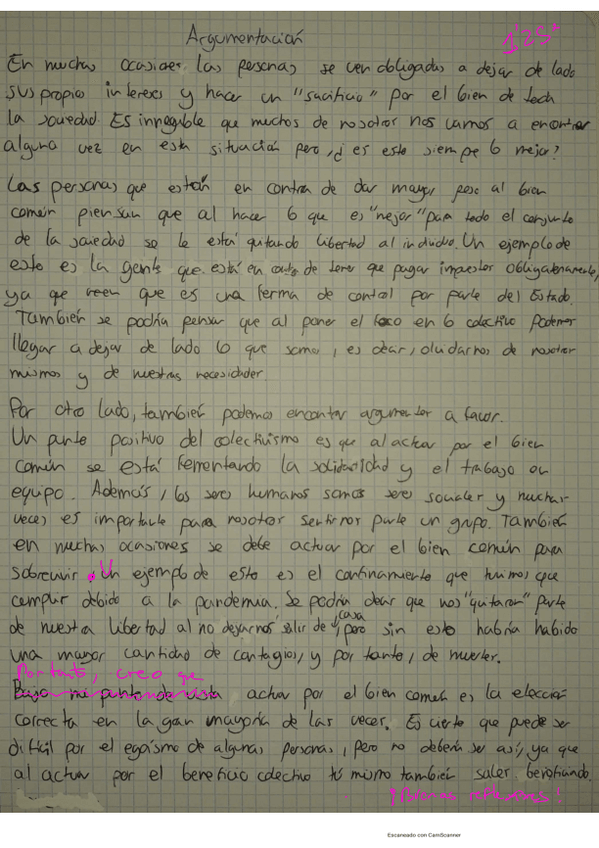 Argumentación
1'25
En muchas ocasiones las personas se ven obligadas a dejar de lado
sus propios intereses y hacer un "sacrificio" por el bien de toda
la sociedad. Es innegable que muchos de nosotros nos vamos a encontrar
alguna vez en esta situación pero, ¿es esto siempre lo mejor?
Las personas que están en contra de dar mayor peso al bien
común piensan que al hacer lo que es "mejor" para todo el conjunto
de la sociedad se le está quitando libertad al individuo. Un ejemplo de
esto es la gente que está en contra de tener que pagar impuestos obligatoriamente,
ya que creen que es una forma de control por parte del Estado.
También se podría pensar que al poner el foco en lo colectivo podemos
llegar a dejar de lado lo que somos, es decir, olvidarnos de nosotros
mismos y de nuestras necesidades.
Por otro lado, también podemos encontrar argumentos a favor.
Un punto positivo del colectivismo es que al actuar por el bien
común se está fomentando la solidaridad y el trabajo en
equipo. Además, los seres humanos somos seres sociales y muchas
veces es importante para nosotros sentirnos parte un grupo. También
en muchas ocasiones se debe actuar por el bien común para
sobrevivir. Un ejemplo de esto es el confinamiento que tuvimos que
cumplir debido a la pandemia. Se podría decir que nos "quitaron" parte
de nuestra libertad al no dejarnos salir de casa, pero sin esto habría habido
una mayor cantidad de contagios, y por tanto, de muertes.
Por tanto, creo que
Bajo mi punto de vista actuar por el bien común es la elección
correcta en la gran mayoría de las veces. Es cierto que puede ser
difícil por el egoísmo de algunas personas, pero no debería ser así, ya que
al actuar por el beneficio colectivo tú mismo también sales
¡Buenas reflexiones!
Escaneado con CamScanner